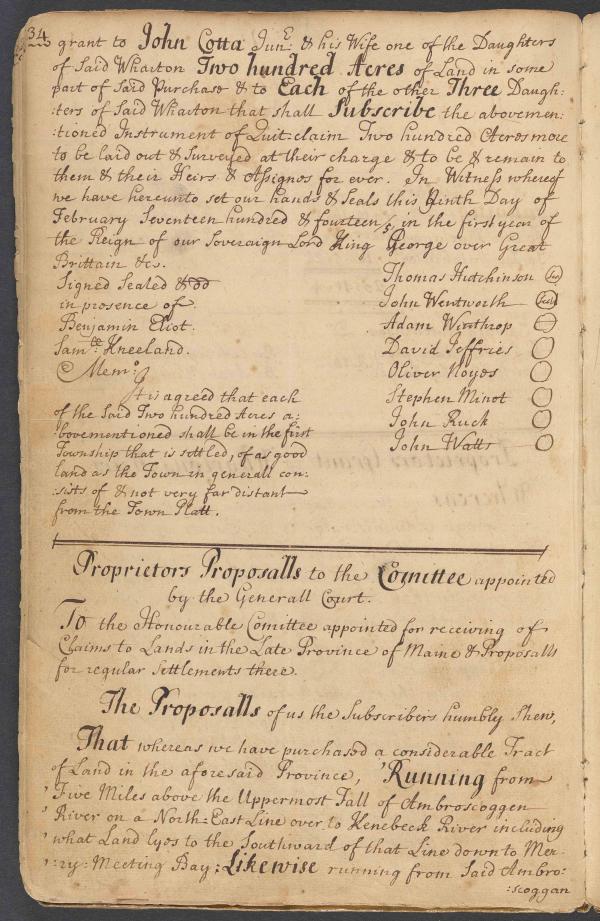 34
grant to John Cotta Junr. & his Wife one of the Daughters
of Said Wharton Two hundred Acres of Land in some
part of Said Purchase & to Each of the other Three Daugh:
:ters of Said Wharton that shall Subscribe the abovemen:
:tioned Instrument of Quit:claim Two hundred Acres more
to be laid out & Surveyed at their charge & to be & remain to
them & their Heirs & Assignes for ever. In Witness whereof
we have hereunto set our hands & Seals this Ninth Day of
February Seventeen hundred & fourteen/5 in the first year of
the Reign of our Soveraign Lord King George over Great
Brittain &c.
Signed Sealed & dd
in presence of
Benjamin Eliot.
Samll. Kneeland.
Thomas Hutchinson Seal
John Wentworth Seal
Adam Winthrop
David Jeffries
Oliver Noyes
Stephen Minot
John Ruck
John Watts
Memo.
It is agreed that each
of the Said Two hundred Acres a:
:bovementioned shall be in the first
Township that is settled, of as good
land as the Town in generall con:
:sists of & not very far distant
from the Town Platt.
Proprietors Proposalls to the Comittee appointed
by the Generall Court.
To the Honourable Comittee appointed for receiving of
Claims to Lands in the Late Province of Maine & Proposalls
for regular Settlements there.
The Proposalls of us the Subscribers humbly Shew,
That whereas we have purchased a considerable Tract
of Land in the aforesaid Province, 'Running from
' Five Miles above the Uppermost Fall of Ambroscoggen
' River on a North:East Line over to Kenebeck River including
' what Land lyes to the Southward of that Line down to Mer:
' :ry: Meeting Bay; Likewise running from Said Ambro:
:scoggan